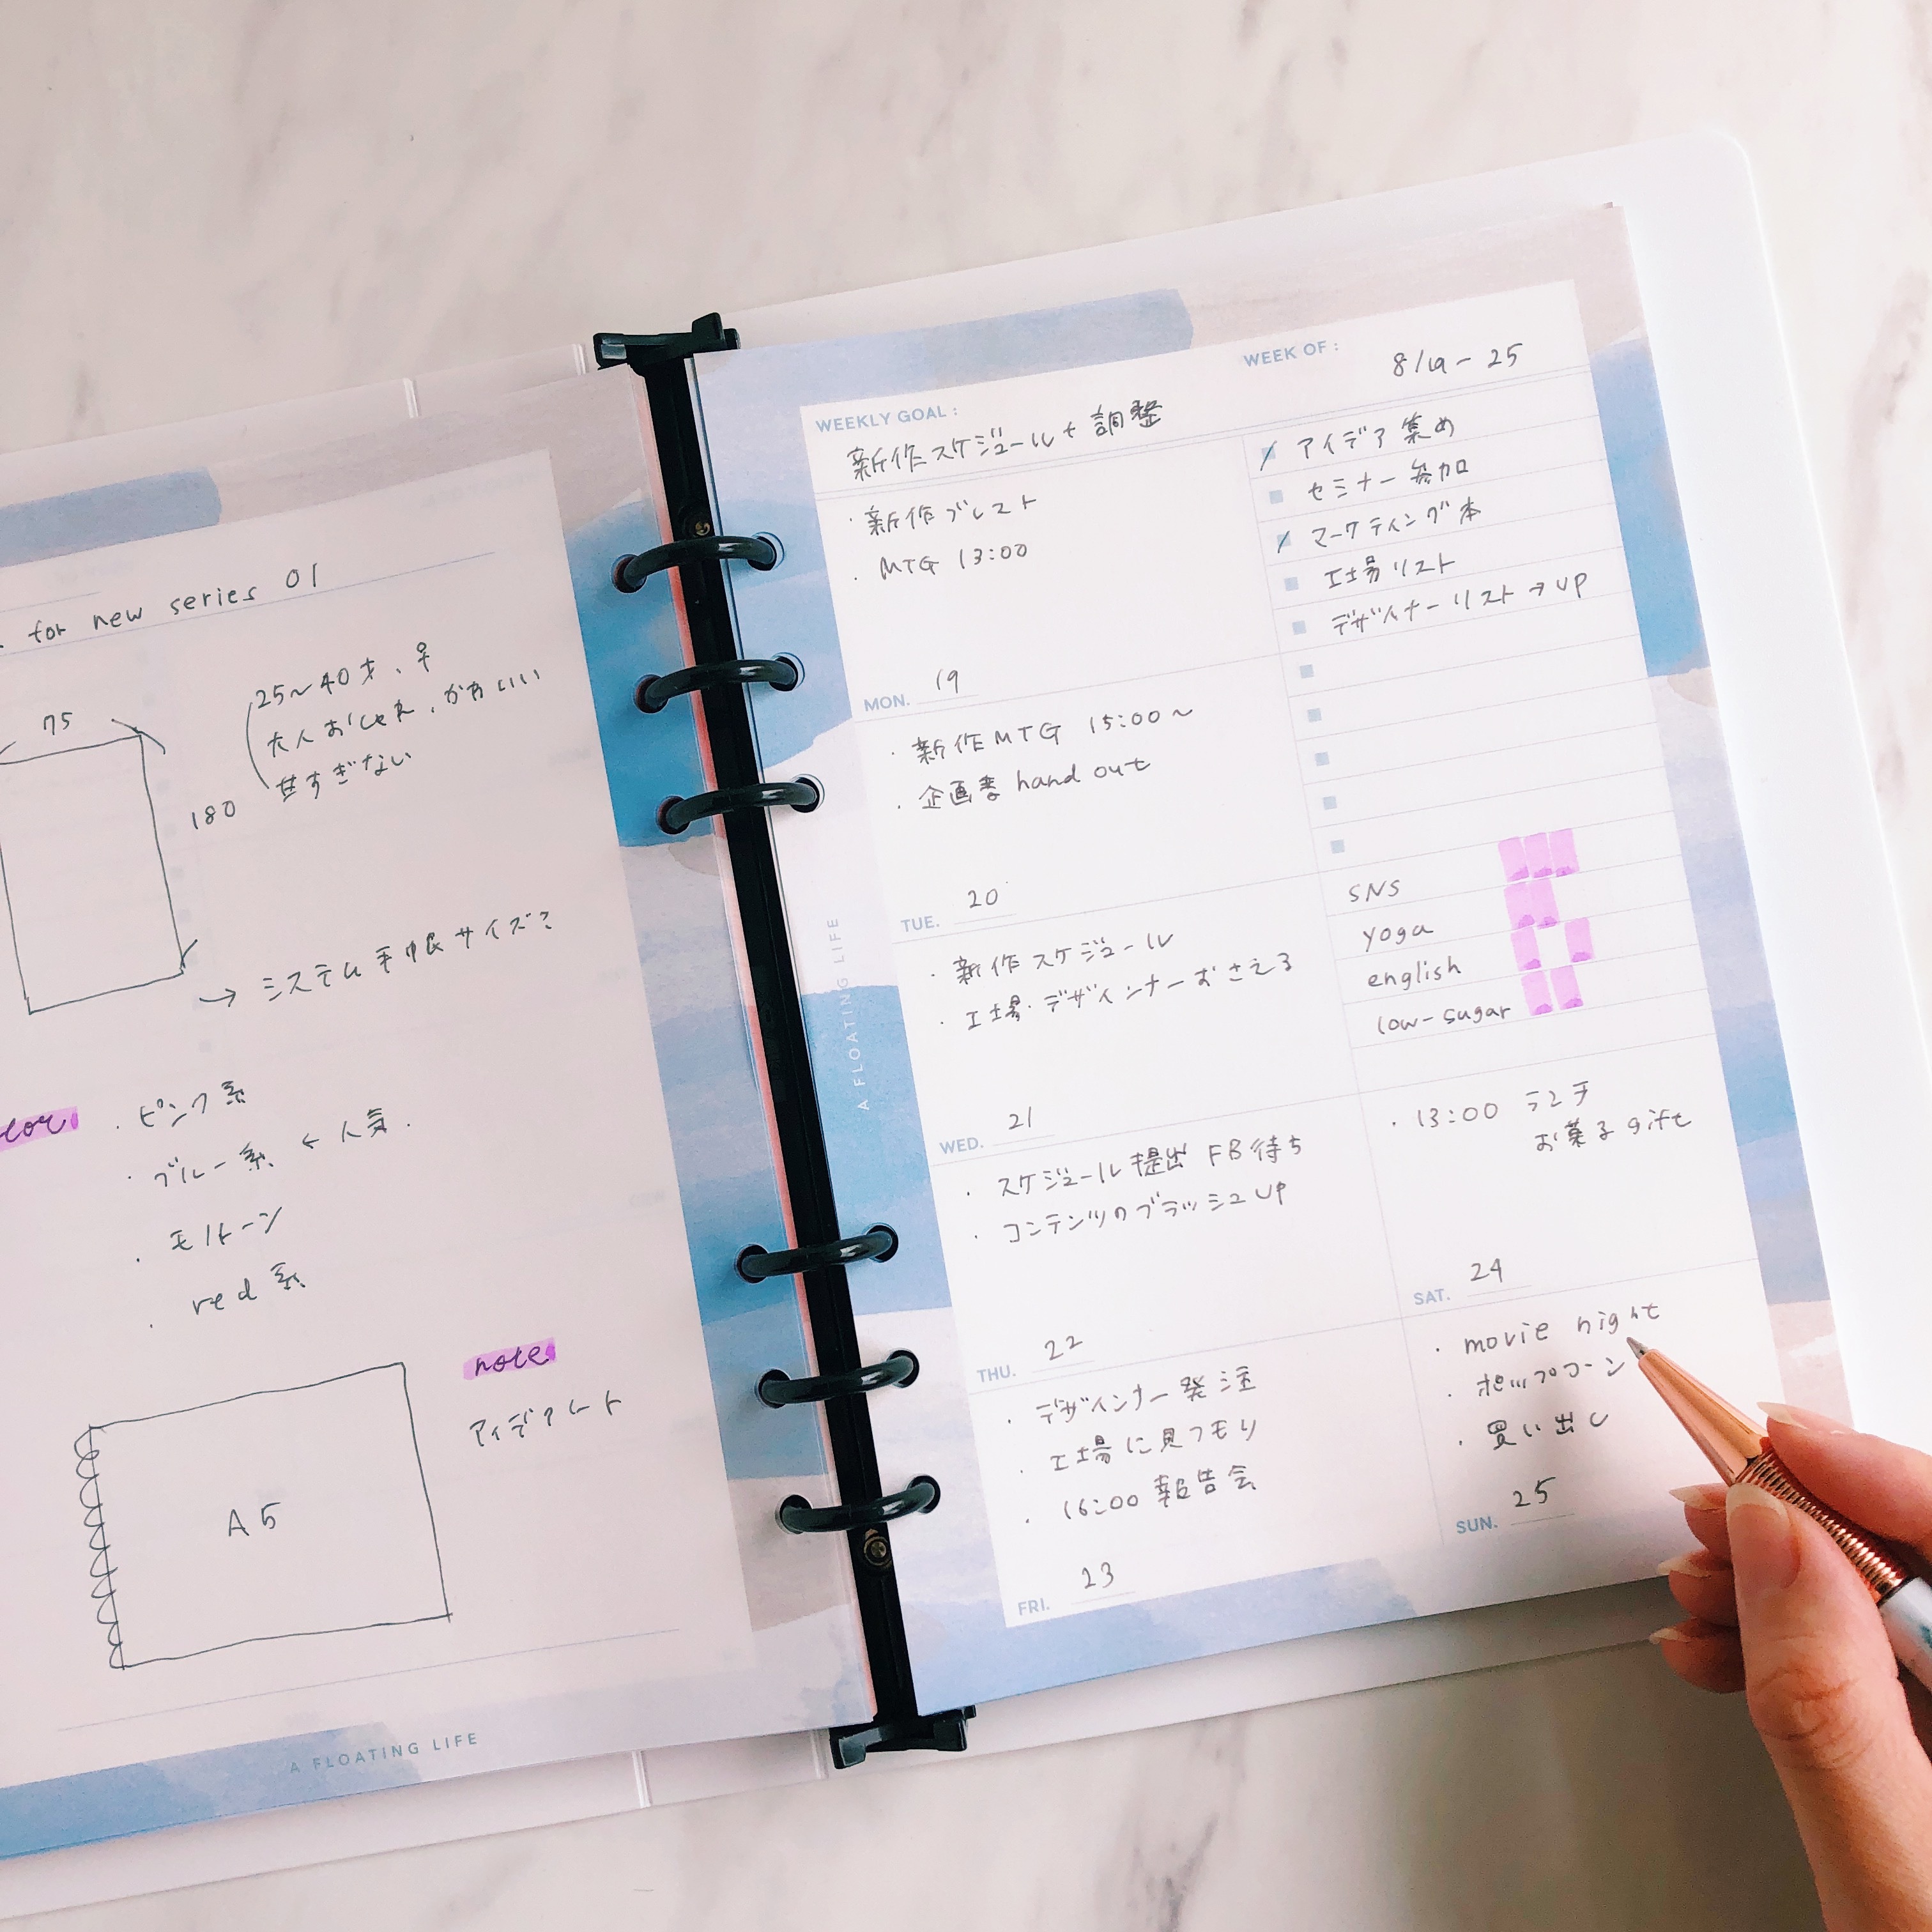 for new series 01
75
180
25〜40才、♀
大人おしゃれ、かわいい
甘すぎない
→ システム手帳サイズ?
・ピンク系
・ブルー系 ← 人気.
・モノトーン
・red系
A5
note
アイデアノート
A FLOATING LIFE
A FLOATING LIFE
WEEKLY GOAL :
新作スケジュール+調整
WEEK OF :
8/19-25
・新作ブレスト
・MTG 13:00
MON. 19
・新作MTG 15:00〜
・企画書 hand out
TUE. 20
・新作スケジュール
・工場・デザインナーおさえる
WED. 21
・スケジュール提出 FB待ち
・コンテンツのブラッシュUP
THU. 22
・デザインナー発注
・工場に見つもり
・16:00 報告会
FRI. 23
アイデア集め
セミナー参加
マーケティング本
工場リスト
デザイナーリスト→UP
SNS
yoga
english
low-sugar
・13:00 ランチ
お菓子gift
SAT. 24
・movie night
・ポップコーン
・買い出し
SUN. 25